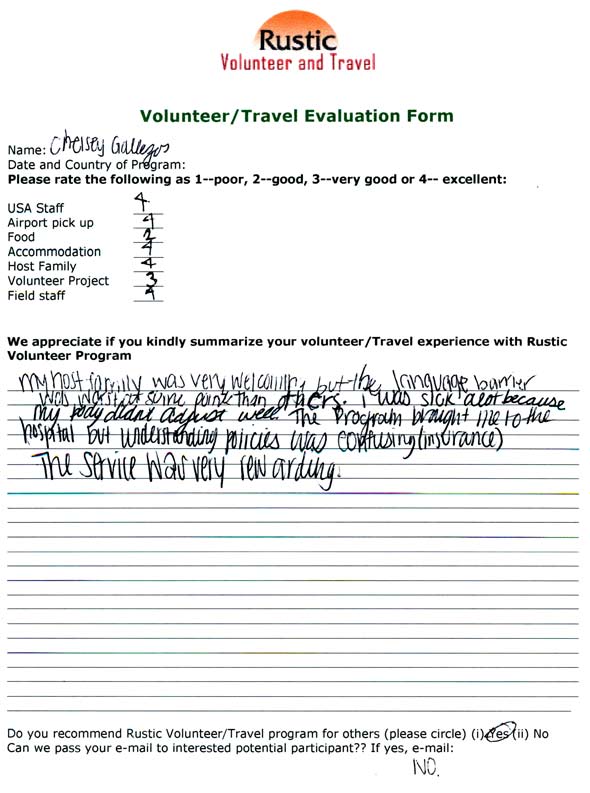 Rustic
Volunteer and Travel
Volunteer/Travel Evaluation Form
Name: Chelsey Gallegos
Date and Country of Program:
Please rate the following as 1--poor, 2--good, 3--very good or 4-- excellent:
USA Staff 4
Airport pick up 4
Food 2
Accommodation 4
Host Family 4
Volunteer Project 3
Field staff 4
We appreciate if you kindly summarize your volunteer/Travel experience with Rustic
Volunteer Program
My host family was very welcoming but the language barrier
was worst at some point than others. I was sick alot because
my body didnt adjust well. The Program brought me to the
hospital but understanding policies was confusing (insurance)
The service was very rewarding.
Do you recommend Rustic Volunteer/Travel program for others (please circle) (i) Yes (ii) No
Can we pass your e-mail to interested potential participant?? If yes, e-mail:
NO.